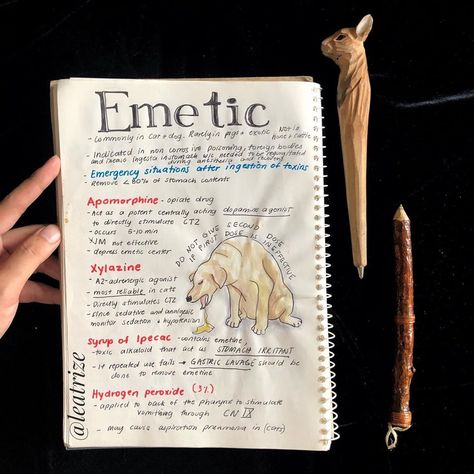 Emetic
- Commonly in cat + dog. Rarely in pigs + exotic Not in
horse + cattle
- Indicated in non corrosive poisoning, foreign bodies
and ingesta in stomach needed to be regurgitated
during anesthesia and recovery
- Emergency situations after ingestion of toxins
- Remove < 80% of stomach contents
Apomorphine - opiate drug
- Act as a potent centrally acting dopamine agonist
to directly stimulate CTZ
- occurs 5-10 min
- XJM not effective
- depress emetic center
DO NOT GIVE SECOND DOSE
IF FIRST DOSE IS INEFFECTIVE
Xylazine
- A2-adrenergic agonist
- most reliable in cats
- Directly stimulates CTZ
- Since sedative and analgesic
monitor sedation & hypotension
Syrup of Ipecac - contains emetine,
- toxic alkaloid that act as STOMACH IRRITANT
- If repeated use fails → GASTRIC LAVAGE should be
done to remove emetine
Hydrogen peroxide (3%)
- applied to back of the pharynx to stimulate
vomitting through CN IX
- may cause aspiration pneumonia in (cats)
@leatrize